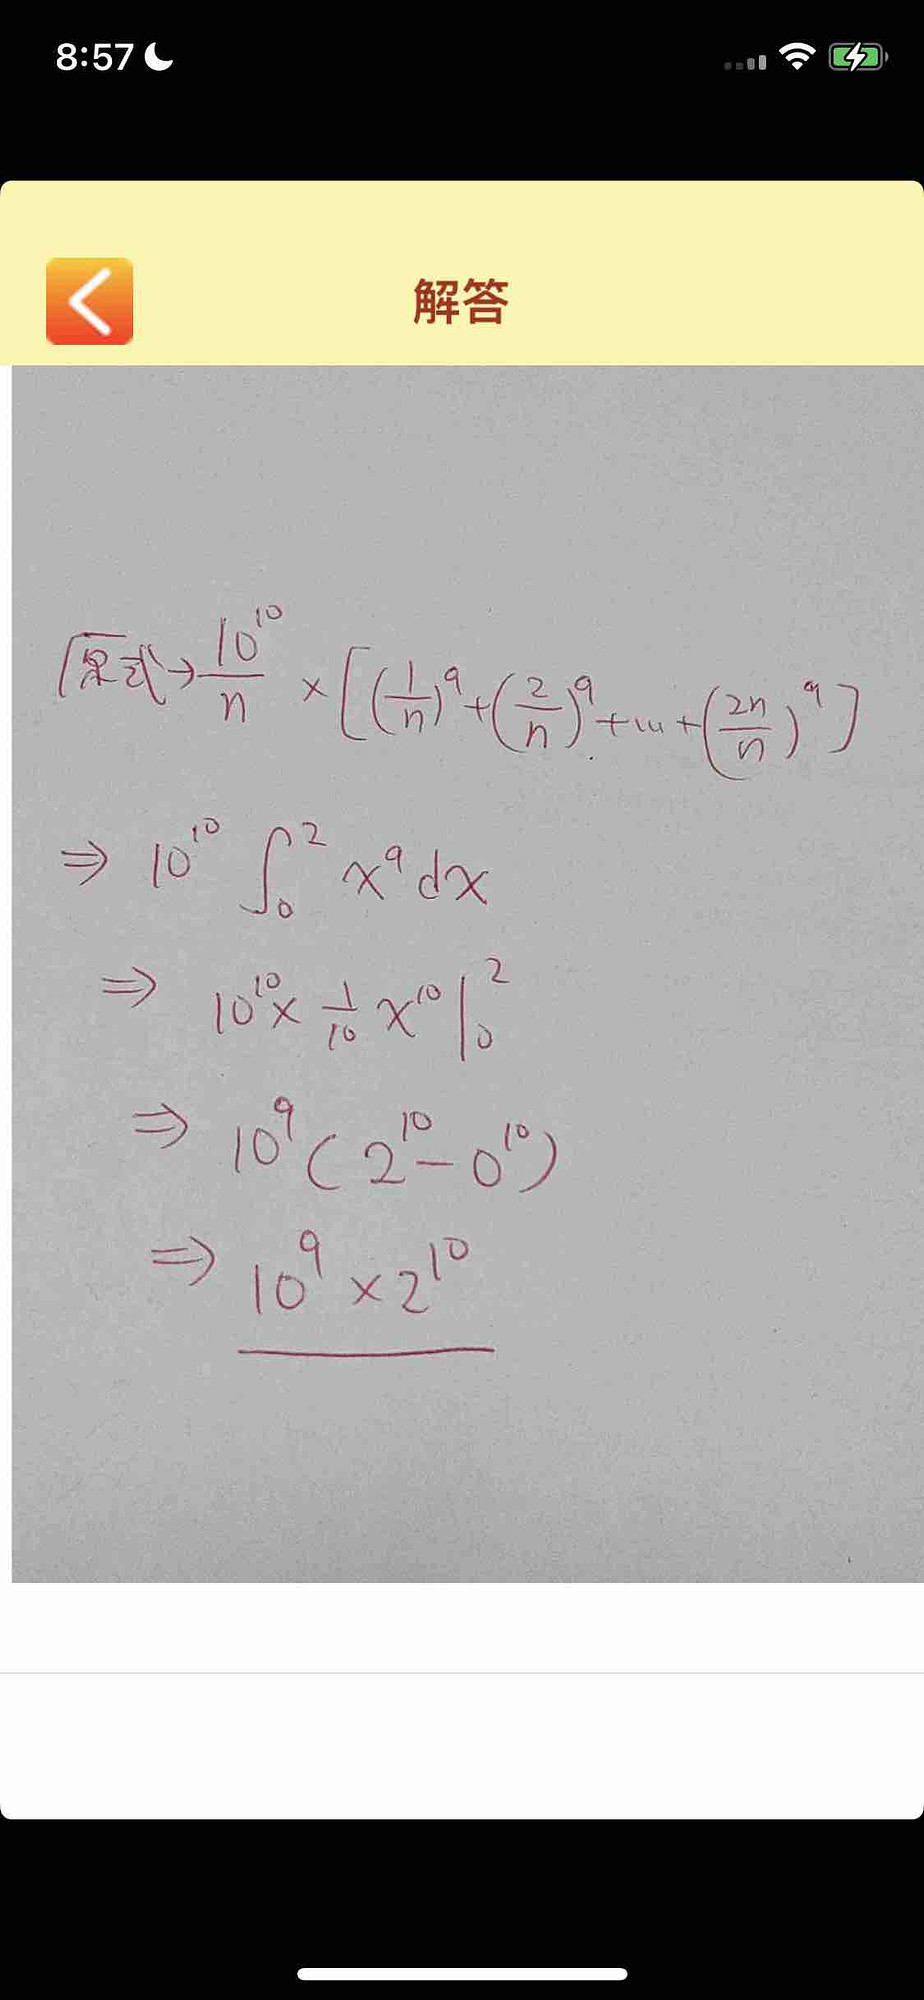 8:57
解答
原式→ 10^10/n × [(1/n)^9 + (2/n)^9 + ... + (2n/n)^9]
⇒ 10^10 ∫_0^2 x^9 dx
⇒ 10^10 × 1/10 x^10 |_0^2
⇒ 10^9 (2^10 - 0^10)
⇒ 10^9 × 2^10